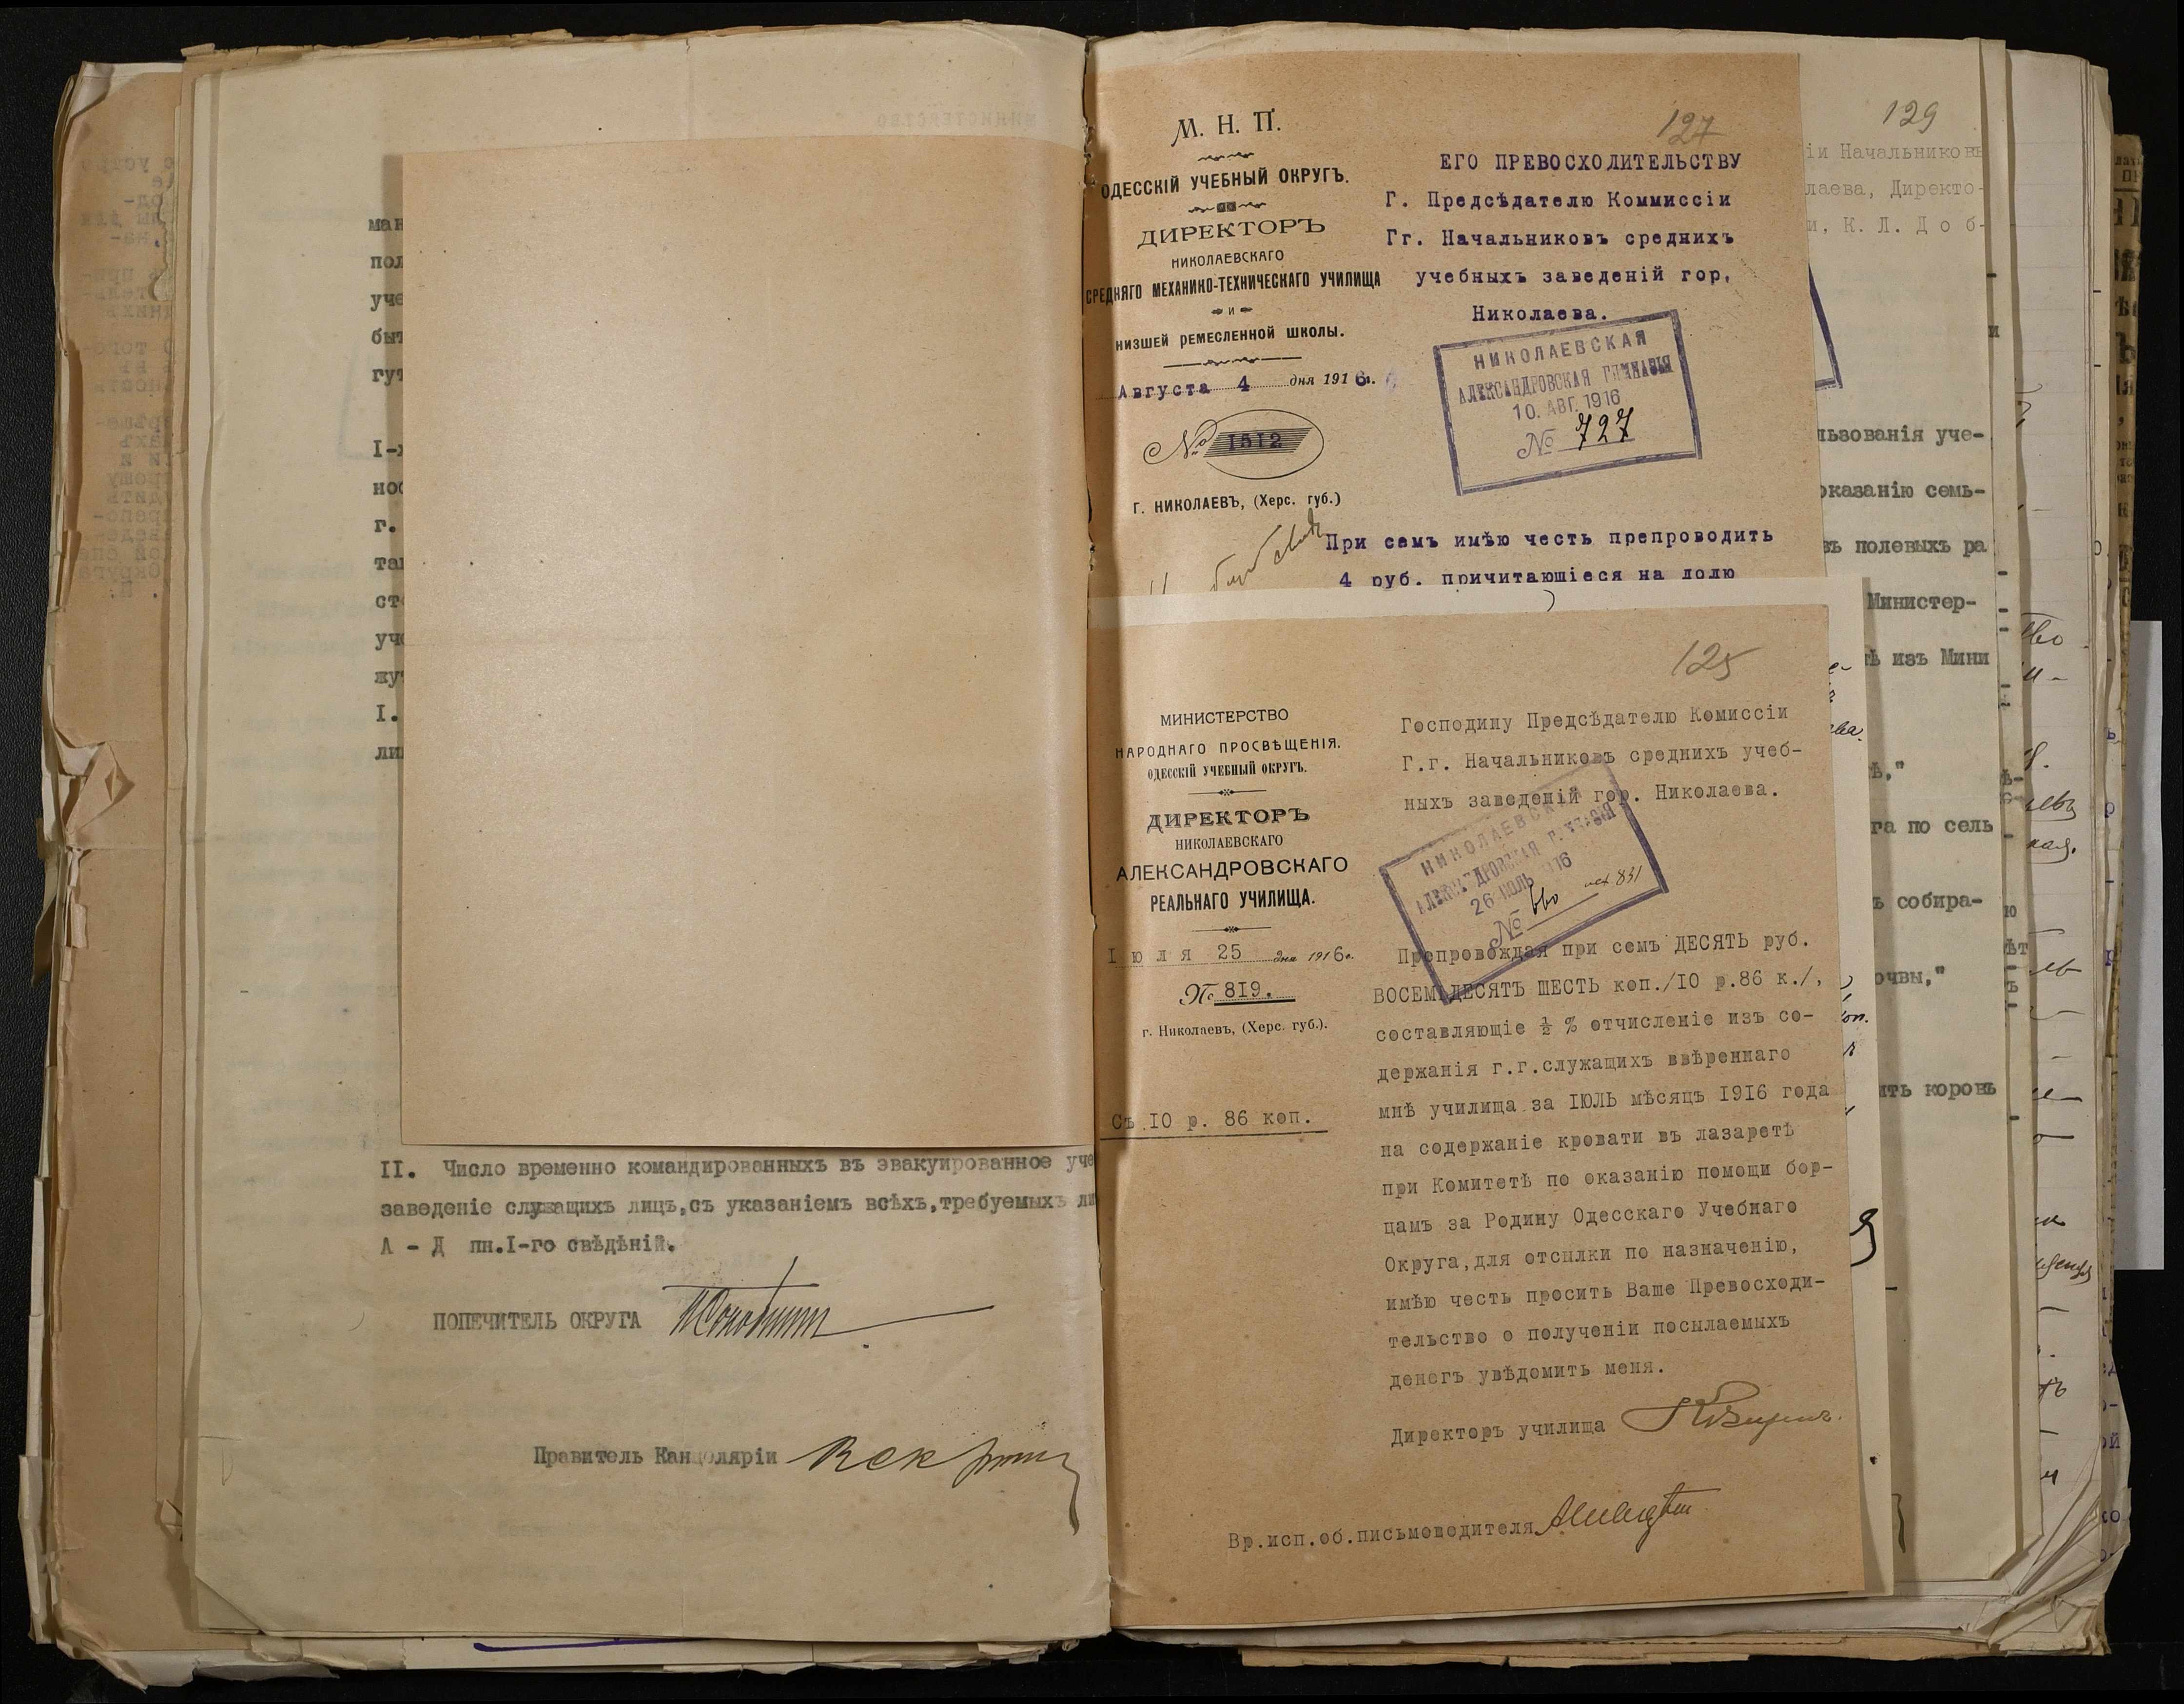 ман
пол
уче
быт
гут
I-х
нос
г.
так
сто
уче
жу
I.
ли
II. Число временно командированныхъ въ эвакуированное уче
заведеніе служащихъ лицъ,съ указаніемъ всѣхъ,требуемыхъ ли
А - Д пн.I-го свѣдѣній.
ПОПЕЧИТЕЛЬ ОКРУГА
Правитель Канцеляріи
М. Н. П.
ОДЕССКІЙ УЧЕБНЫЙ ОКРУГЪ.
ДИРЕКТОРЪ
НИКОЛАЕВСКАГО
СРЕДНЯГО МЕХАНИКО-ТЕХНИЧЕСКАГО УЧИЛИЩА
И
НИЗШЕЙ РЕМЕСЛЕННОЙ ШКОЛЫ.
Августа 4 дня 1916г.
№ 1512
Г. НИКОЛАЕВЪ, (Херс. губ.)
127
ЕГО ПРЕВОСХОДИТЕЛЬСТВУ
Г. Предсѣдателю Коммиссіи
Гг. Начальниковъ среднихъ
учебныхъ заведеній гор,
Николаева.
НИКОЛАЕВСКАЯ
АЛЕКСАНДРОВСКАЯ ГИМНАЗІЯ
10. АВГ. 1916
№ 727
При семъ имѣю честь препроводить
4 руб. причитающіеся на долю
125
МИНИСТЕРСТВО
НАРОДНАГО ПРОСВѢЩЕНІЯ.
ОДЕССКІЙ УЧЕБНЫЙ ОКРУГЪ.
ДИРЕКТОРЪ
НИКОЛАЕВСКАГО
АЛЕКСАНДРОВСКАГО
РЕАЛЬНАГО УЧИЛИЩА.
Іюля 25 дня 1916г.
№ 819.
г. Николаевъ, (Херс. губ.).
Съ 10 р. 86 коп.
Господину Предсѣдателю Комиссіи
Г.г. Начальниковъ среднихъ учеб-
ныхъ заведеній гор. Николаева.
НИКОЛАЕВСКАЯ
АЛЕКСАНДРОВСКАЯ ГИМНАЗІЯ
26 ИЮЛЬ 1916
№ 660 исх 831
Препровождая при семъ ДЕСЯТЬ руб.
ВОСЕМЬДЕСЯТЪ ШЕСТЬ коп./10 р.86 к./,
составляющіе ½ % отчисленіе изъ со-
держанія г.г.служащихъ ввѣреннаго
мнѣ училища за ІЮЛЬ мѣсяцъ 1916 года
на содержаніе кровати въ лазаретѣ
при Комитетѣ по оказанію помощи бор-
цамъ за Родину Одесскаго Учебнаго
Округа,для отсылки по назначенію,
имѣю честь просить Ваше Превосходи-
тельство о полученіи посылаемыхъ
денегъ увѣдомить меня.
Директоръ училища
Вр.исп.об.письмоводителя
129
іи Начальниковъ
лаева, Директо-
и, К. Л. Д о б-
и
льзованія уче-
оказанію семь-
въ полевыхъ ра
Министер-
ѣ изъ Мини
ѣ,"
га по сель
ъ собира-
очвы,"
ить коровъ